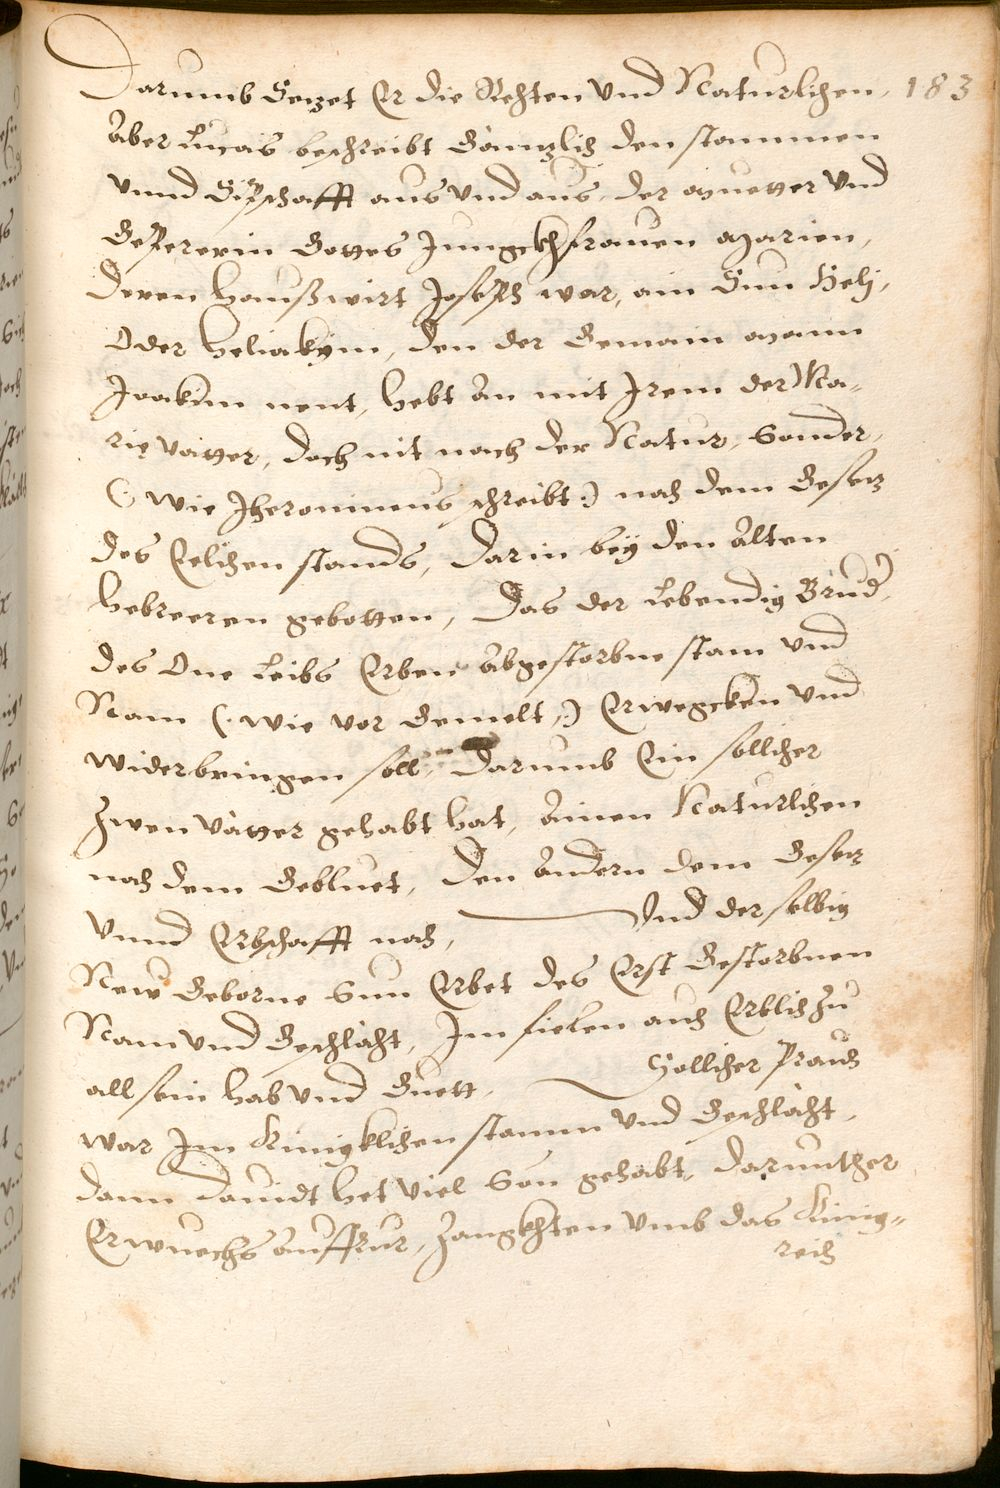 Darumb Setzet Er die Rechten vnd Naturlichen, 183
Aber Lucas beschreibt Gäntzlich den stammen
vnnd Sipschafft aus vnd aus, der muetter vnd
Gepererin Gottes Jungckhfrauen Marien,
Deren haußwirt Joseph war, ain Sun Helj,
Oder Heliakÿm, den der Gemain mann
Joakim nent, hebt an mit Jrem der) Ma-
rię vatter, doch nit nach der Natur, Sonder,
(: wie Jheronimus schreibt :) nach dem Gesetz
des Eelichen stands, Darin beÿ den Alten
hebreeren gebotten, Das der Lebendig Brued(er)
des One Leibs Erben Abgestorbne stam vnd
Nam (: wie vor Gemelt :) Erwegcken vnd
widerbringen soll, Darumb Ein sollicher
Zwen Vätter gehabt hat, Ainen Naturlichen
nach dem Gebluet, Den Andern dem Gesetz
vnnd Erbschafft nach, Vnd der selbig
New Geborne Sun Erbet des Erst Gestorbnen
Nam vnd Geschlächt, Jm fielen auch Erblich Zu
all sein hab vnd Guett, Sollicher Prauch
war Jm Künigklichen stamm vnd Geschlächt,
dann Dauidt het viel Sön gehabt, Darunther
Erwuechs Auffrur, Zangkhten vmb das Künig-
reich